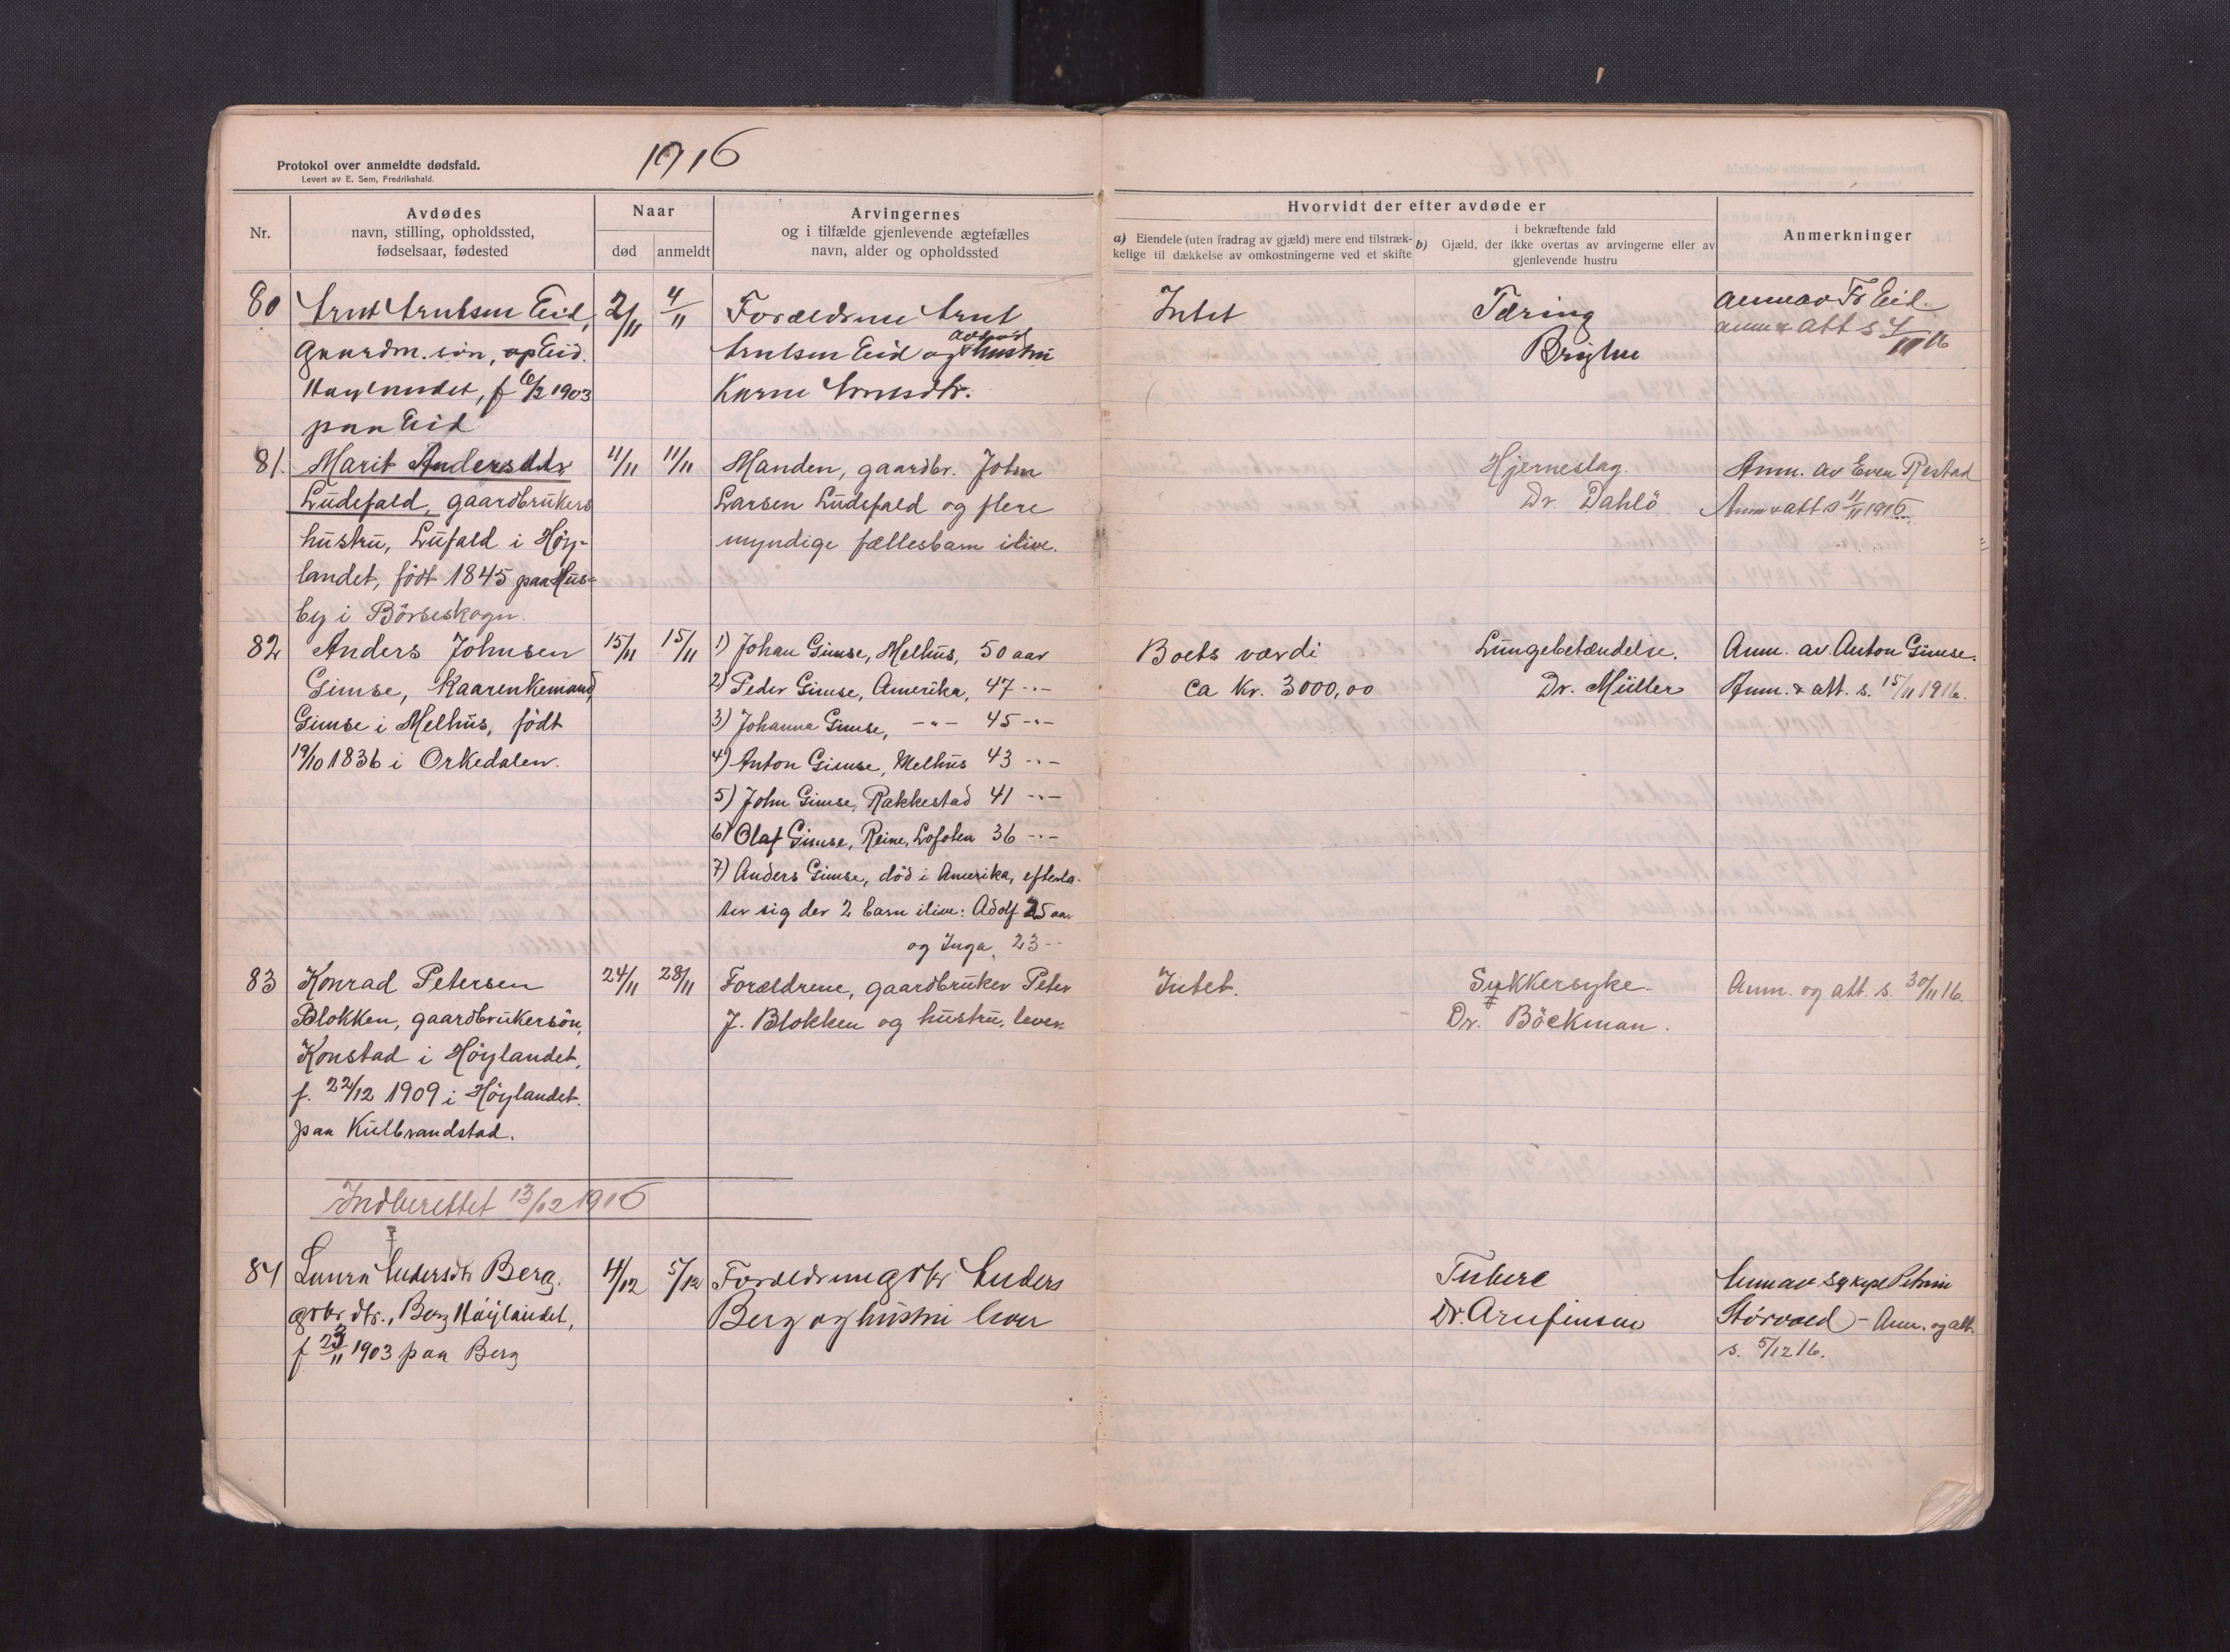 1916
Protokol over anmeldte dødsfald.
Levert av E. Sem, Fredrikshald.
Nr.
Avdødes
navn, stilling, opholdssted,
fødselsaar, fødested
Naar
død
anmeldt
Arvingernes
og i tilfælde gjenlevende ægtefælles
navn, alder og opholdssted
Hvorvidt der efter avdøde er
a) Eiendele (uten fradrag av gjæld) mere end tilstræk-
kelige til dækkelse av omkostningerne ved et skifte
i bekræftende fald
b) Gjæld, der ikke overtas av arvingerne eller av
gjenlevende hustru
Anmerkninger
80
Arnt Arntsen Eid,
gaardm. søn, Eid.
Høylandet, f 1903
paa Eid
2/11
4/11
Forældrene Arnt
Arntsen Eid og hustru
Intet
Tæring
Anm av Fr Eid.
anm & att s 4/11 16
81.
Marit Andersdtr
Ludefald, gaardbrukers
hustru, Lufald i Høy-
landet, født 1845 paa Hus-
by i Börseskogn.
11/11
11/11
Manden, gaardbr. John
Larsen Ludefald og flere
myndige fællesbarn ilive.
Hjerneslag.
Dr. Dahlö
Anm. av Even Restad
Anm & att s 11/11 1916.
82
Anders Johnsen
Gimse, Kaarenkemand,
Gimse i Melhus, født
19/10 1836 i Orkedalen.
15/11
15/11
1) Johan Gimse, Melhus, 50 aar
2) Peder Gimse, Amerika, 47 -"-
3) Johanna Gimse, -"- 45 -"-
4) Anton Gimse, Melhus 43 -"-
5) John Gimse, Rakkestad 41 -"-
6) Olaf Gimse, Reine, Lofoten 36 -"-
7) Anders Gimse, död i Amerika, efterla-
ter sig der 2 barn ilive: Adolf 25 aar
og Inga, 23 -"-
Boets værdi
ca Kr. 3000,00
Lungebetændelse.
Dr. Müller
Anm. av Anton Gimse.
Anm. & att. s. 15/11 1916.
83
Konrad Petersen
Blokken, gaardbrukersön,
Konstad i Höylandet,
f. 22/12 1909 i Höylandet.
paa Kulbrandstad.
24/11
28/11
Forældrene, gaardbruker Peter
J. Blokken og hustru, lever.
Intet.
Sukkersyke.
Dr. Böckman.
Anm. og att. s. 30/11 16.
Indberettet 13/12 1916
84
Laura Andersdtr Berg.
gbr. dtr., Berg Höylandet,
f 23/11 1903 paa Berg
4/12
5/12
Forældrene gbr Anders
Berg og hustru lever
Tuberc
Dr. Arnfinsen
Anm av sykepl Petrine
Störvold - Anm. og att.
s. 5/12 16.